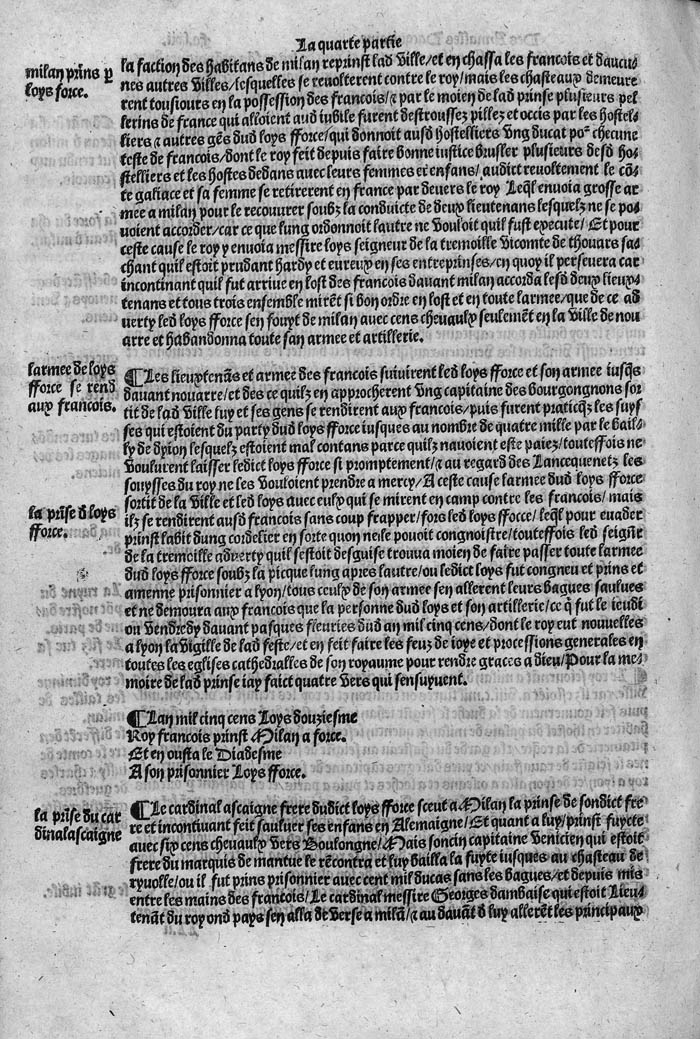 La quarte partie
milan prins p
loys force.
la faction des habitans de milan reprinst lad ville/et en chassa les francois et daucu-
nes autres villes/lesquelles se revolterent contre le roy/mais les chasteaux demeure
rent tousiours en la possession des francois/⁊ par le moien de lad prinse plusieurs pel
lerins de france qui alloient aud iubile furent destroussez pillez et occis par les hoste-
liers ⁊ autres gēs dud loys fforce/qui donnoit ausd hostelliers vng ducat poᵉ checune
teste de francois/dont le roy feit depuis faire bonne iustice brusler plusieurs desd ho-
stelliers et les hostes dedans avec leurs femmes et enfans/audict revoltement le cō-
te galiace et sa femme se retirerent en france par devers le roy Leq̄l envoia grosse ar
mee a milan pour le recouvrer soubz la conduicte de deux lieutenans lesquelz ne se po-
voient accorder/car ce que lung ordonnoit lautre ne vouloit quil fust execute/Et pour
ceste cause le roy y envoia messire loys seigneur de la tremoille Vicomte de thouars sa-
chant quil estoit prudant hardy et eureux en ses entreprinses/en quoy il persevera car
incontinant quil fut arrive en lost des francois davant milan accorda lesd deux lieux-
tenans et tous trois ensemble mirēt si bon ordre en lost et en toute larmee/que de ce ad
verty led loys fforce sen fouyt de milan avec cens chevaulx seulemēt en la ville de nou
arre et habandonna toute san armee et artillerie.
larmee de loys
fforce se rend
aux francois.
¶Les lieuxtenās et armee des francois suivirent led loys fforce et son armee iusq̄s
davant nouarre/et des ce quilz en approcherent vng capitaine des bourgongnons sor
tit de lad ville luy et ses gens se rendirent aux francois/puis furent praticq̄z les suys
ses qui estoient du party dud loys fforce iusques au nombre de quatre mille par le bail-
ly de dyion lesquelz estoient mal contans parce quilz navoient este paiez/touteffois ne
voulurent laisser ledict loys fforce si promptement/⁊ au regard des Lancequenetz les
souysses du roy ne les vouloient prendre a mercy/A ceste cause larmee dud loys fforce
sortit de la ville et led loys avec eulx qui se mirent en camp contre les francois/mais
la prīse d loys
fforce.
ilz se rendirent ausd francois sans coup frapper/fors led loys ffocce/leq̄l pour evader
prinst labit dung cordelier en sorte quon ne le povoit congnoistre/touteffois led seignr̄
de la tremoille adverty quil sestoit desguise trouva moien de faire passer toute larmee
dud loys fforce soubz la picque lung apres lautre/ou ledict loys fut congneu et prins et
amenne prisonnier a lyon/tous ceulx de son armee sen allerent leurs bagues saulues
et ne demoura aux francois que la personne dud loys et son artillerie/ce q̄ fut le ieudi
ou vendredy davant pasques fleuries dud an mil cinq cens/dont le roy eut nouvelles
a lyon la vigille de lad feste/et en feit faire les feuz de ioye et processions generales en
toutes les eglises cathedralles de son royaume pour rendre graces a dieu/Pour la me-
moire de lad prinse iay faict quatre vers qui sensuyuent.
¶Lan mil cinq cens Loys douziesme
Roy francois prinst Milan a force.
Et en ousta le Diadesme
A son prisonnier Loys fforce.
la prise du car
dinal ascaigne
¶Le cardinal ascaigne frere dudict loys fforce sceut a Milan la prinse de sondict fre
re et incontinant feit sauluer ses enfans en Alemaigne/Et quant a luy/prinst fuycte
avec six cens chevaulx vers Boulongne/Mais soncin capitaine Venicien qui estoit
frere du marquis de mantue le rēcontra et luy bailla la fuyte iusques au chasteau de
ryuolle/ou il fut prins prisonnier avec cent mil ducas sans les bagues/et depuis mis
entre les mains des francois/Le cardinal messire Georges dambaise qui estoit Lieu-
tenāt du roy ond pays sen alla de Verse a milā/⁊ au davāt d luy allerēt les principaux